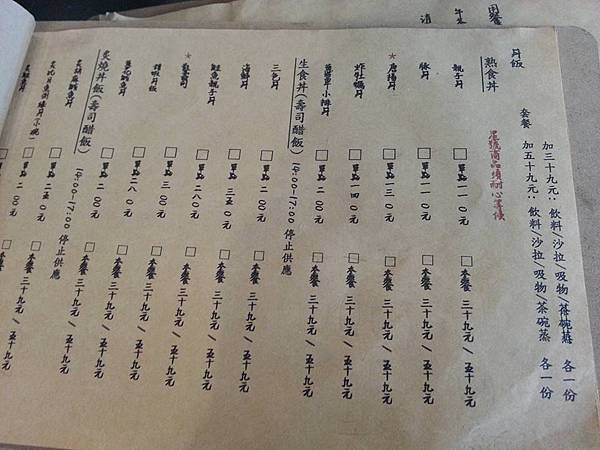 用餐
丼飯
套餐 加三十九元：飲料/沙拉/吸物/茶碗蒸 各一份
加五十九元：飲料/沙拉/吸物/茶碗蒸 各一份
星號商品須耐心等候
熟食丼
親子丼 □單點 一一0元 □套餐 三十九元/五十九元
豚丼 □單點 一一0元 □套餐 三十九元/五十九元
★唐揚丼 □單點 一三0元 □套餐 三十九元/五十九元
炸牡蠣丼 □單點 一四0元 □套餐 三十九元/五十九元
小排丼 □單點 二00元 □套餐 三十九元/五十九元
生食丼(壽司醋飯) 14:00-17:00 停止供應
三色丼 □單點 二00元 □套餐 三十九元/五十九元
海鮮丼 □單點 三五0元 □套餐 三十九元/五十九元
鮭魚親子丼 □單點 二八0元 □套餐 三十九元/五十九元
★ □單點 三00元 □套餐 三十九元/五十九元
丼飯 □單點 二八0元 □套餐 三十九元/五十九元
鮭魚丼 □單點 二00元 □套餐 三十九元/五十九元
炙燒丼飯(壽司醋飯) 14:00-17:00 停止供應
炙 鮭魚丼 □單點 二五0元 □套餐 三十九元/五十九元
炙比目魚 丼(小碗) □單點 二00元 □套餐 三十九元/五十九元